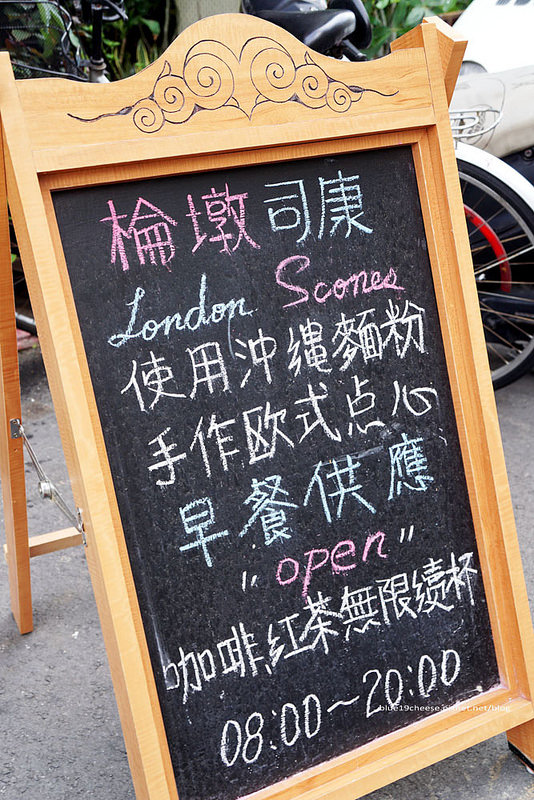 檜墩司康
London Scones
使用沖縄麵粉
手作欧式点心
早餐供應
"open"
咖啡紅茶無限續杯
08:00~20:00
blue19cheese.pixnet.net/blog